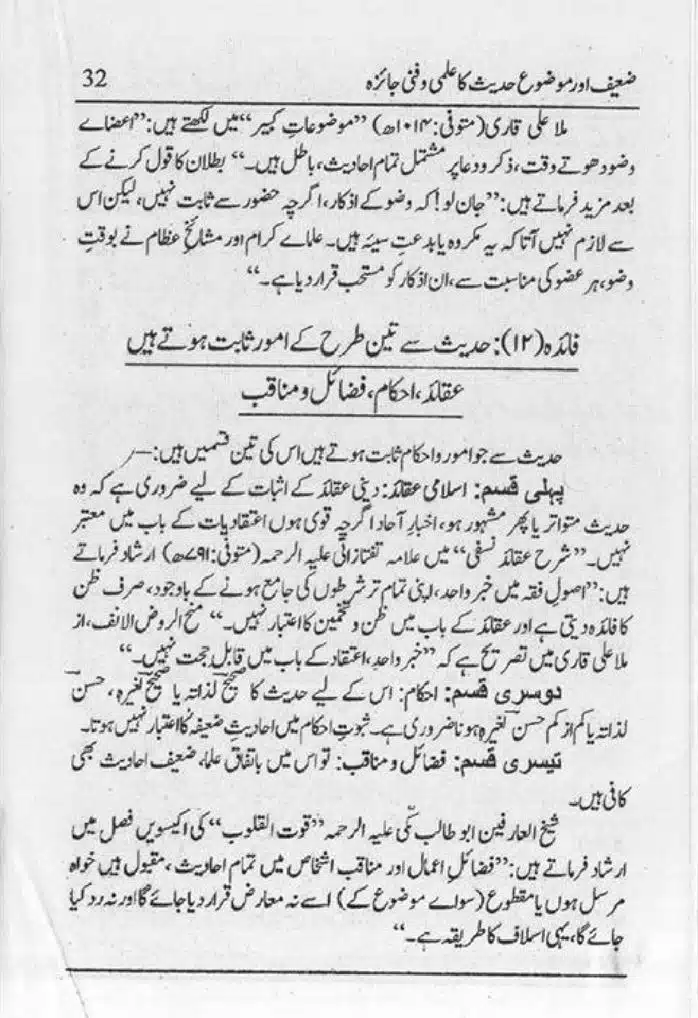 ضعیف اور موضوع حدیث کا علمی و فنی جائزہ
32
ملا علی قاری (متوفی: ۱۰۱۴ھ) ”موضوعاتِ کبیر“ میں لکھتے ہیں: ”اعضاے
وضو دھوتے وقت، ذکر و دعا پر مشتمل تمام احادیث، باطل ہیں۔“ بطلان کا قول کرنے کے
بعد مزید فرماتے ہیں: ”جان لو! کہ وضو کے اذکار، اگرچہ حضور سے ثابت نہیں، لیکن اس
سے لازم نہیں آتا کہ یہ مکروہ یا بدعتِ سیئہ ہیں۔ علماے کرام اور مشائخِ عظام نے بوقتِ
وضو، ہر عضو کی مناسبت سے، ان اذکار کو مستحب قرار دیا ہے۔“
فائدہ (۱۲): حدیث سے تین طرح کے امور ثابت ہوتے ہیں
عقائد، احکام، فضائل و مناقب
حدیث سے جو امور و احکام ثابت ہوتے ہیں اس کی تین قسمیں ہیں:—
پہلی قسم: اسلامی عقائد: دینی عقائد کے اثبات کے لیے ضروری ہے کہ وہ
حدیث متواتر یا پھر مشہور ہو، اخبارِ آحاد اگرچہ قوی ہوں اعتقادیات کے باب میں معتبر
نہیں۔ ”شرح عقائد نسفی“ میں علامہ تفتازانی علیہ الرحمہ (متوفی: ۷۹۱ھ) ارشاد فرماتے
ہیں: ”اصولِ فقہ میں خبر واحد، اپنی تمام تر شرطوں کی جامع ہونے کے باوجود، صرف ظن
کا فائدہ دیتی ہے اور عقائد کے باب میں ظن و تخمین کا اعتبار نہیں۔“ منح الروض الانف، از
ملا علی قاری میں تصریح ہے کہ ”خبر واحد، اعتقاد کے باب میں قابلِ حجت نہیں۔“
دوسری قسم: احکام: اس کے لیے حدیث کا صحیح لذاتہ یا صحیح لغیرہ، حسن
لذاتہ یا کم از کم حسن لغیرہ ہونا ضروری ہے۔ ثبوتِ احکام میں احادیثِ ضعیفہ کا اعتبار نہیں ہوتا۔
تیسری قسم: فضائل و مناقب: تو اس میں باتفاق علما، ضعیف احادیث بھی
کافی ہیں۔
شیخ العارفین ابو طالب مکّی علیہ الرحمہ ”قوت القلوب“ کی اکیسویں فصل میں
ارشاد فرماتے ہیں: ”فضائلِ اعمال اور مناقبِ اشخاص میں تمام احادیث، مقبول ہیں خواہ
مرسل ہوں یا مقطوع (سواے موضوع کے) اسے نہ معارض قرار دیا جائے گا اور نہ رد کیا
جائے گا، یہی اسلاف کا طریقہ ہے۔“